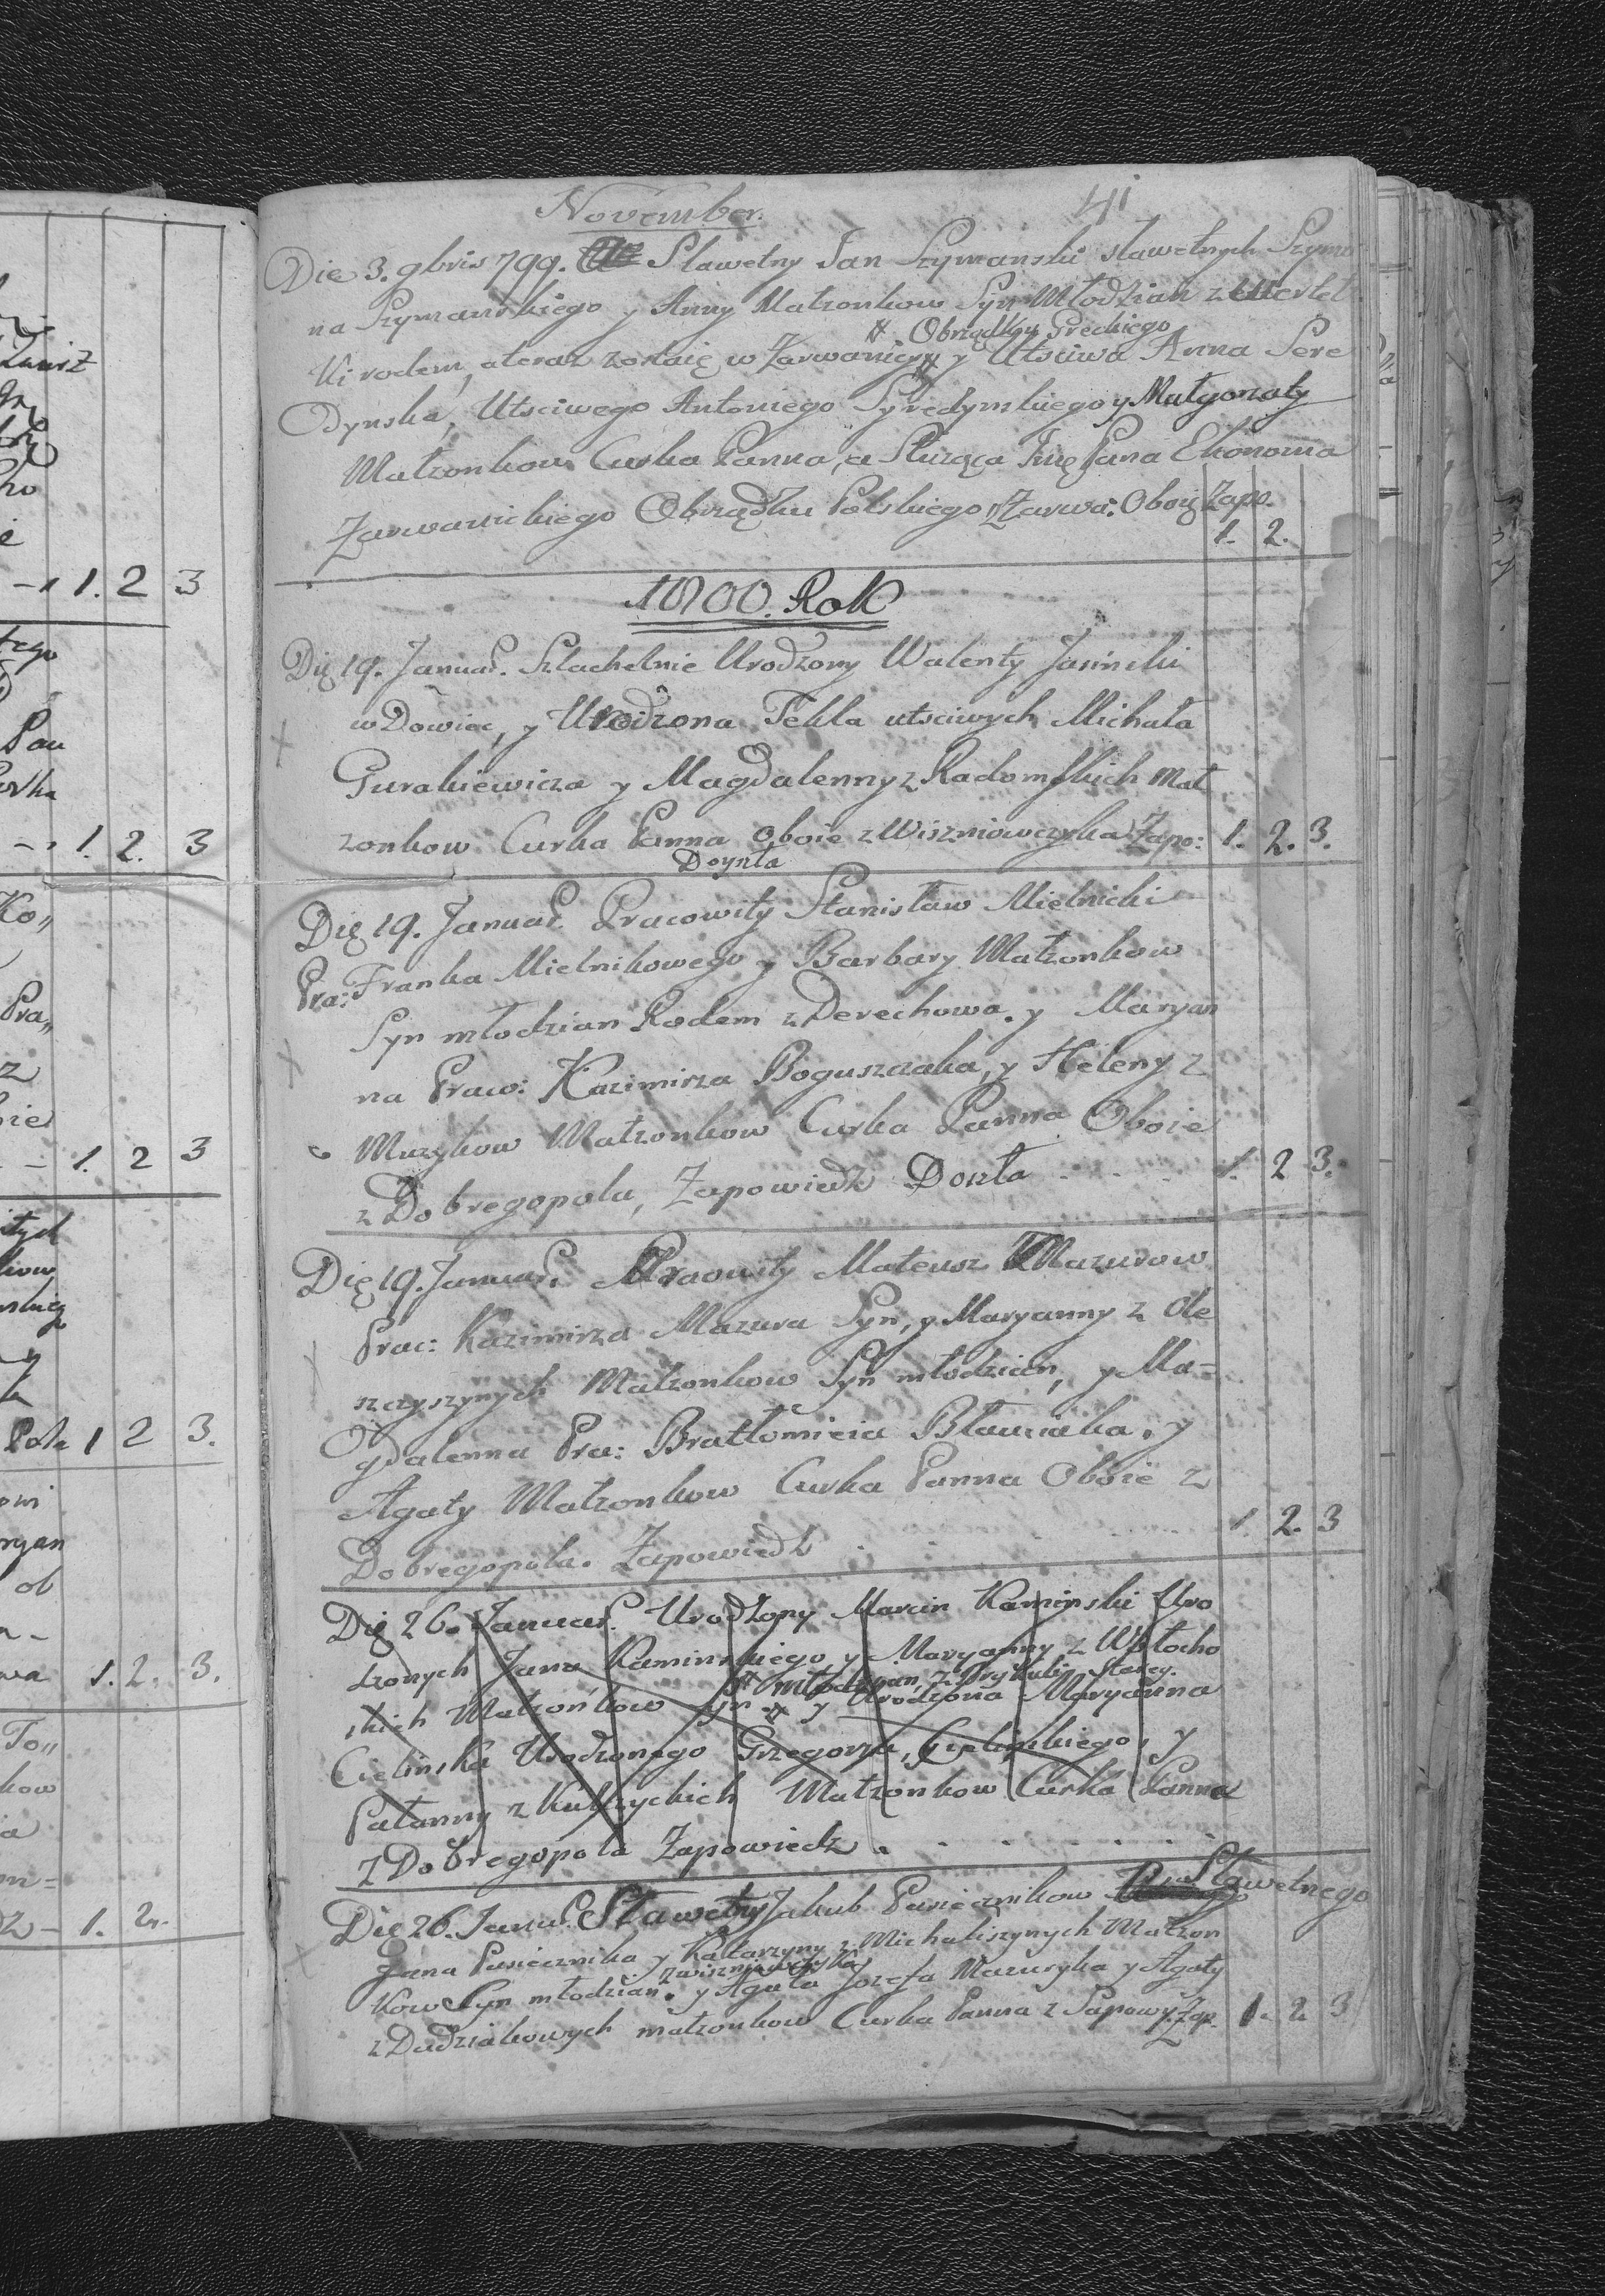 November.
41
Die 3. 9bris 799. Sławetny Jan Szymanski sławetnych Szymo
na Szymanskiego y Anny Małzonkow Syn Młodzian z
# Obrządku Greckiego
ki rodem, a teraz zostaię w Zarwanicy # y Utsciwa Anna Sere
dynska, Utsciwego Antoniego Syredynskiego y Małgorzaty
Małzonkow Curka Panna, a Słuząca Jmę Pana Ekonoma
Zarwanickiego Obrządku Polskiego z Zarwa: Oboię Zapo.
1. 2.
1800. Rok
Dię 19. Januar. Szlachetnie Urodzony Walenty Jasinski
wDowiec, y Urodzona Tekla utsciwych Michała
Gurakiewicza y Magdalenny z Radomskich Mał
zonkow Curka Panna Oboie z Wiszniowczyka Zapo: 1. 2. 3.
Doynta
Dię 19. Januar. Pracowity Stanisław Mielnicki
Pra: Franka Mielnikowego y Barbary Małzonkow
Syn młodzian Rodem z Derechowa. y Maryan
na Praw: Kazimirza Boguszczaka, y Heleny z
Muzykow Małzonkow Curka Panna Oboie
z Dobregopola, Zapowiedz Doszła . . . . 1. 2 3.
Dię 19. Januar. Pracowity Mateusz Mazurow
Prac: Kazimirza Mazura Syn, y Maryanny z Ole
szczyszynych Małzonkow Syn młodzian, y Ma=
gdalenna Pra: Bratłomieia Bławiaka, y
Agaty Małzonkow Curka Panna Oboie z
Dobregopola. Zapowiedz . . . . 1. 2. 3
Dię 26. Januar. Urodzony Marcin Kaminski Uro
dzonych Jana Kaminskiego y Maryanny z Włocho
# młodzian, z
skich Małzonkow Syn # y Urodzona Maryanna
Cielinska Urodzonego Grzegorza Cielinskiego, y
Pałanny z Kulczyckich Małzonkow Curka Panna
z Dobregopola Zapowiedz . . . . . .
Dię 26. Januar. Sławetny Jakub Pasiecznikow Sławetnego
Jana Pasiecznika y Katarzyny z Michaliszynych Małzon
z wiszniowczyka
kow Syn młodzian. y Agata Jozefa Mazuryka y Agaty
z Dudziakowych małzonkow Curka Panna z Sapowy. Zap. 1. 2 3